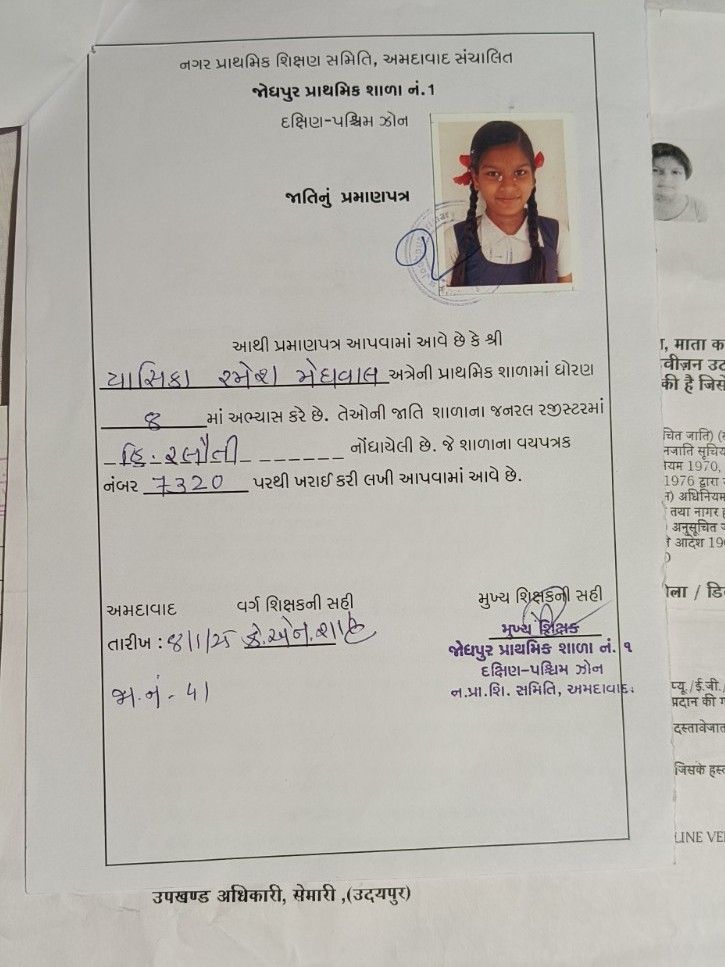 નગર પ્રાથમિક શિક્ષણ સમિતિ, અમદાવાદ સંચાલિત
જોધપુર પ્રાથમિક શાળા નં.1
દક્ષિણ-પશ્ચિમ ઝોન
જાતિનું પ્રમાણપત્ર
આથી પ્રમાણપત્ર આપવામાં આવે છે કે શ્રી
યાસિકા રમેશ મેઘવાલ અત્રેની પ્રાથમિક શાળામાં ધોરણ
8 માં અભ્યાસ કરે છે. તેઓની જાતિ શાળાના જનરલ રજીસ્ટરમાં
હિ. રલૌતી નોંધાયેલી છે. જે શાળાના વયપત્રક
નંબર 7320 પરથી ખરાઈ કરી લખી આપવામાં આવે છે.
અમદાવાદ વર્ગ શિક્ષકની સહી
તારીખ : 8/1/25 કે.એન.શાહ
જા.નં - 41
મુખ્ય શિક્ષકની સહી
મુખ્ય શિક્ષક
જોધપુર પ્રાથમિક શાળા નં. ૧
દક્ષિણ-પશ્ચિમ ઝોન
ન.પ્રા.શિ. સમિતિ, અમદાવાદ.
उपखण्ड अधिकारी, सेमारी ,(उदयपुर)
, माता
की है जिसे
यम 1970,
1976 द्वारा
) अधिनियम
तथा नागर
अनुसूचित
आदेश 19
ला / डि
प्यू./ई.जी.
प्रदान की
दस्तावेजात
जिसके हस्त
LINE VE